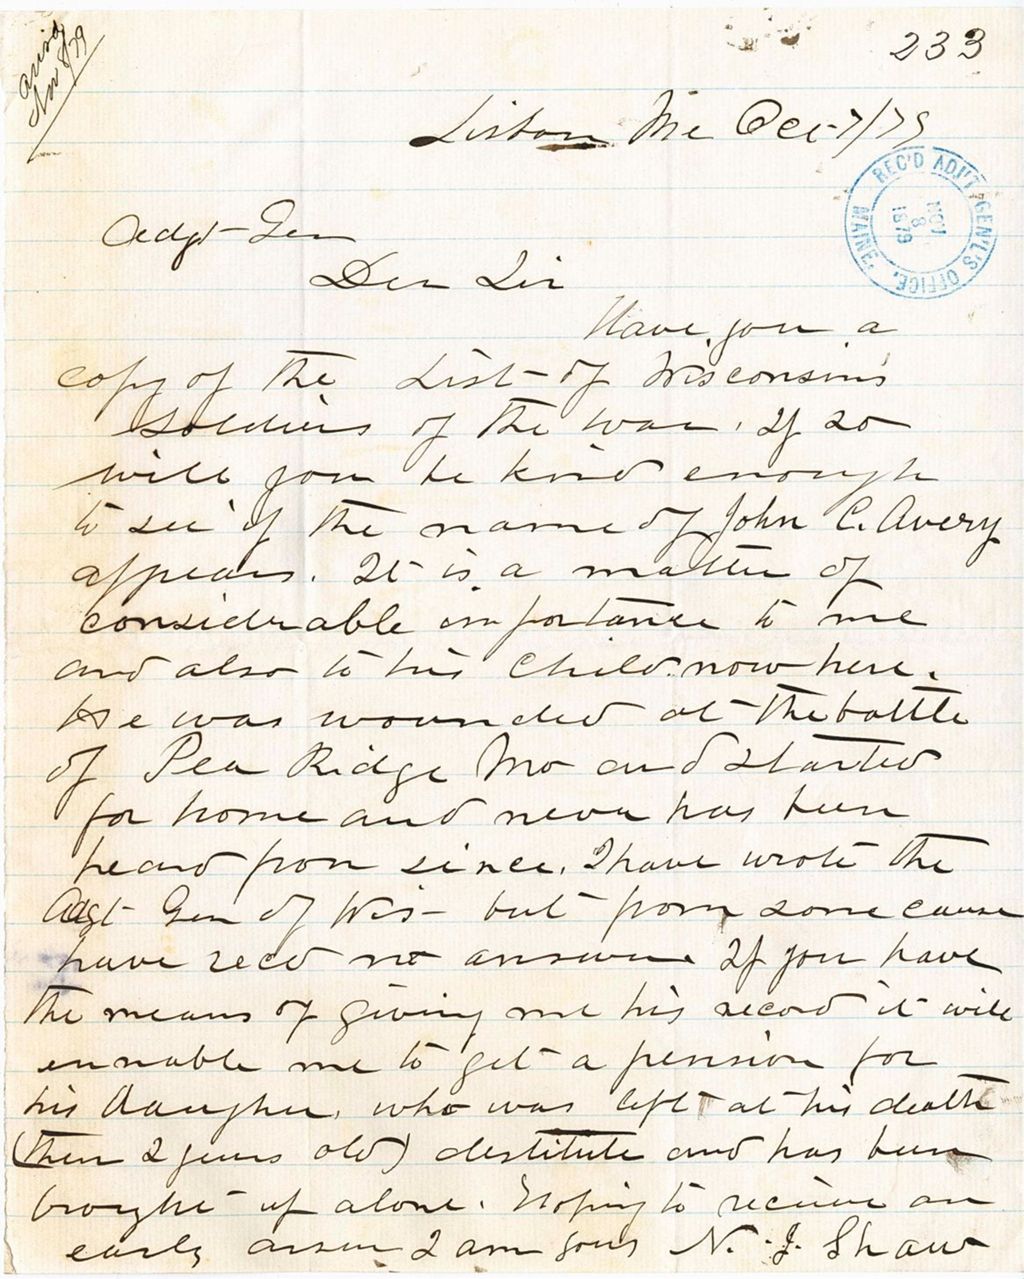 233
Ansd
Nov 8/79
Lisbon Me Oct 7/79
REC'D ADJ'T GEN'L'S OFFICE, MAINE,
NOV
8
1879
Adgt Gen
Dear Sir
Have you a
copy of the List of Wisconsins
Soldiers of the war. If so
will you be kind enough
to see if the name of John C. Avery
appears. It is a matter of
considerable importance to me
and also to his Child now here.
He was wounded at the battle
of Pea Ridge Mo and started
for home and never has been
heard from since. I have wrote the
Adgt Gen of Wis- but from some cause
have recd no answer. If you have
the means of giving me his record it will
ennable me to get a pension for
his Daughter, who was left at his death
(then 2 years old) destitute and has been
brought up alone. Hoping to receive an
early answer I am yours N. J. Shaw